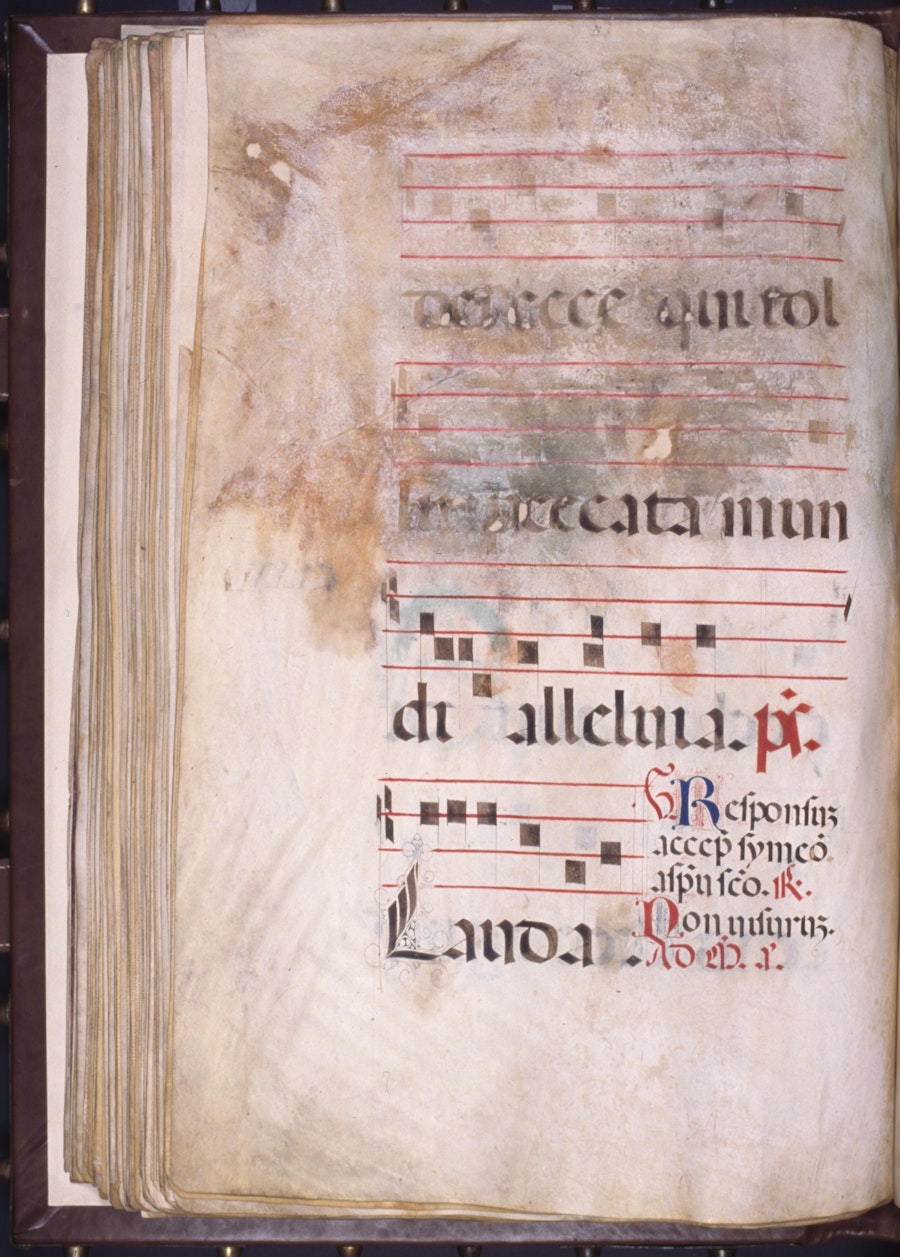 dei ecce qui tol
peccata mun
di alleluia. ps.
Lauda.
V. Responsuz
accep symeõ
aspũ scõ. R.
Non uisuruz.
Ad M. a.